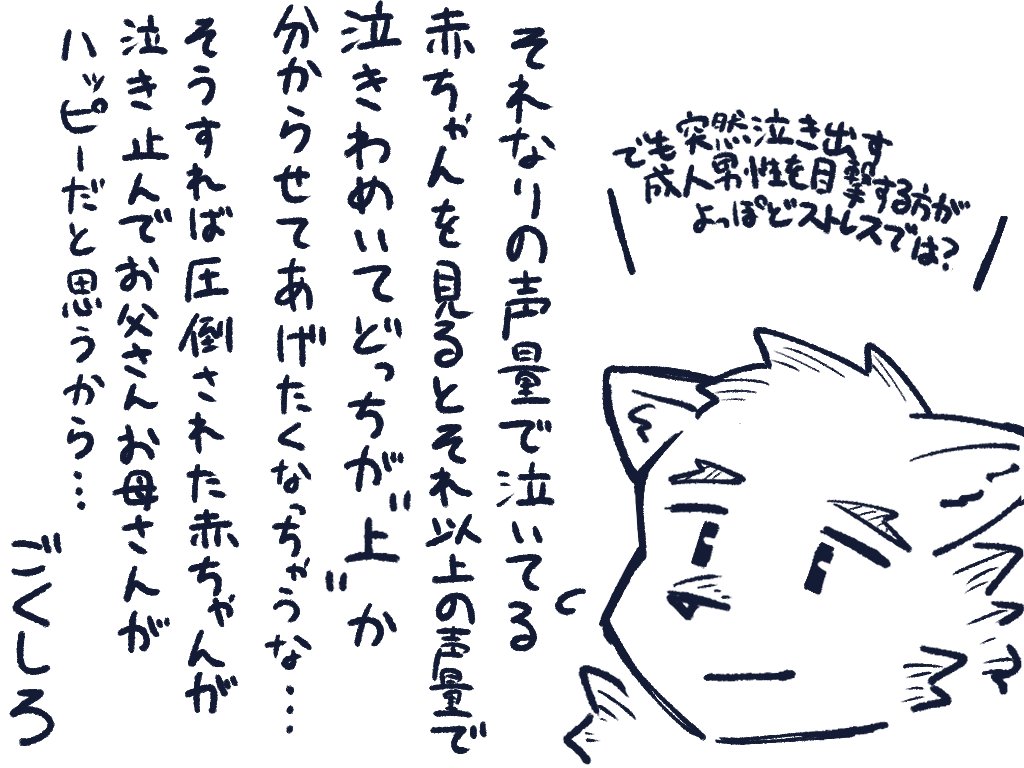 それなりの声量で泣いてる
赤ちゃんを見るとそれ以上の声量で
泣きわめいてどっちが"上"か
分からせてあげたくなっちゃうな…
そうすれば圧倒された赤ちゃんが
泣き止んでお父さんお母さんが
ハッピーだと思うから…
ごくしろ
でも突然泣き出す
成人男性を目撃する方が
よっぽどストレスでは?